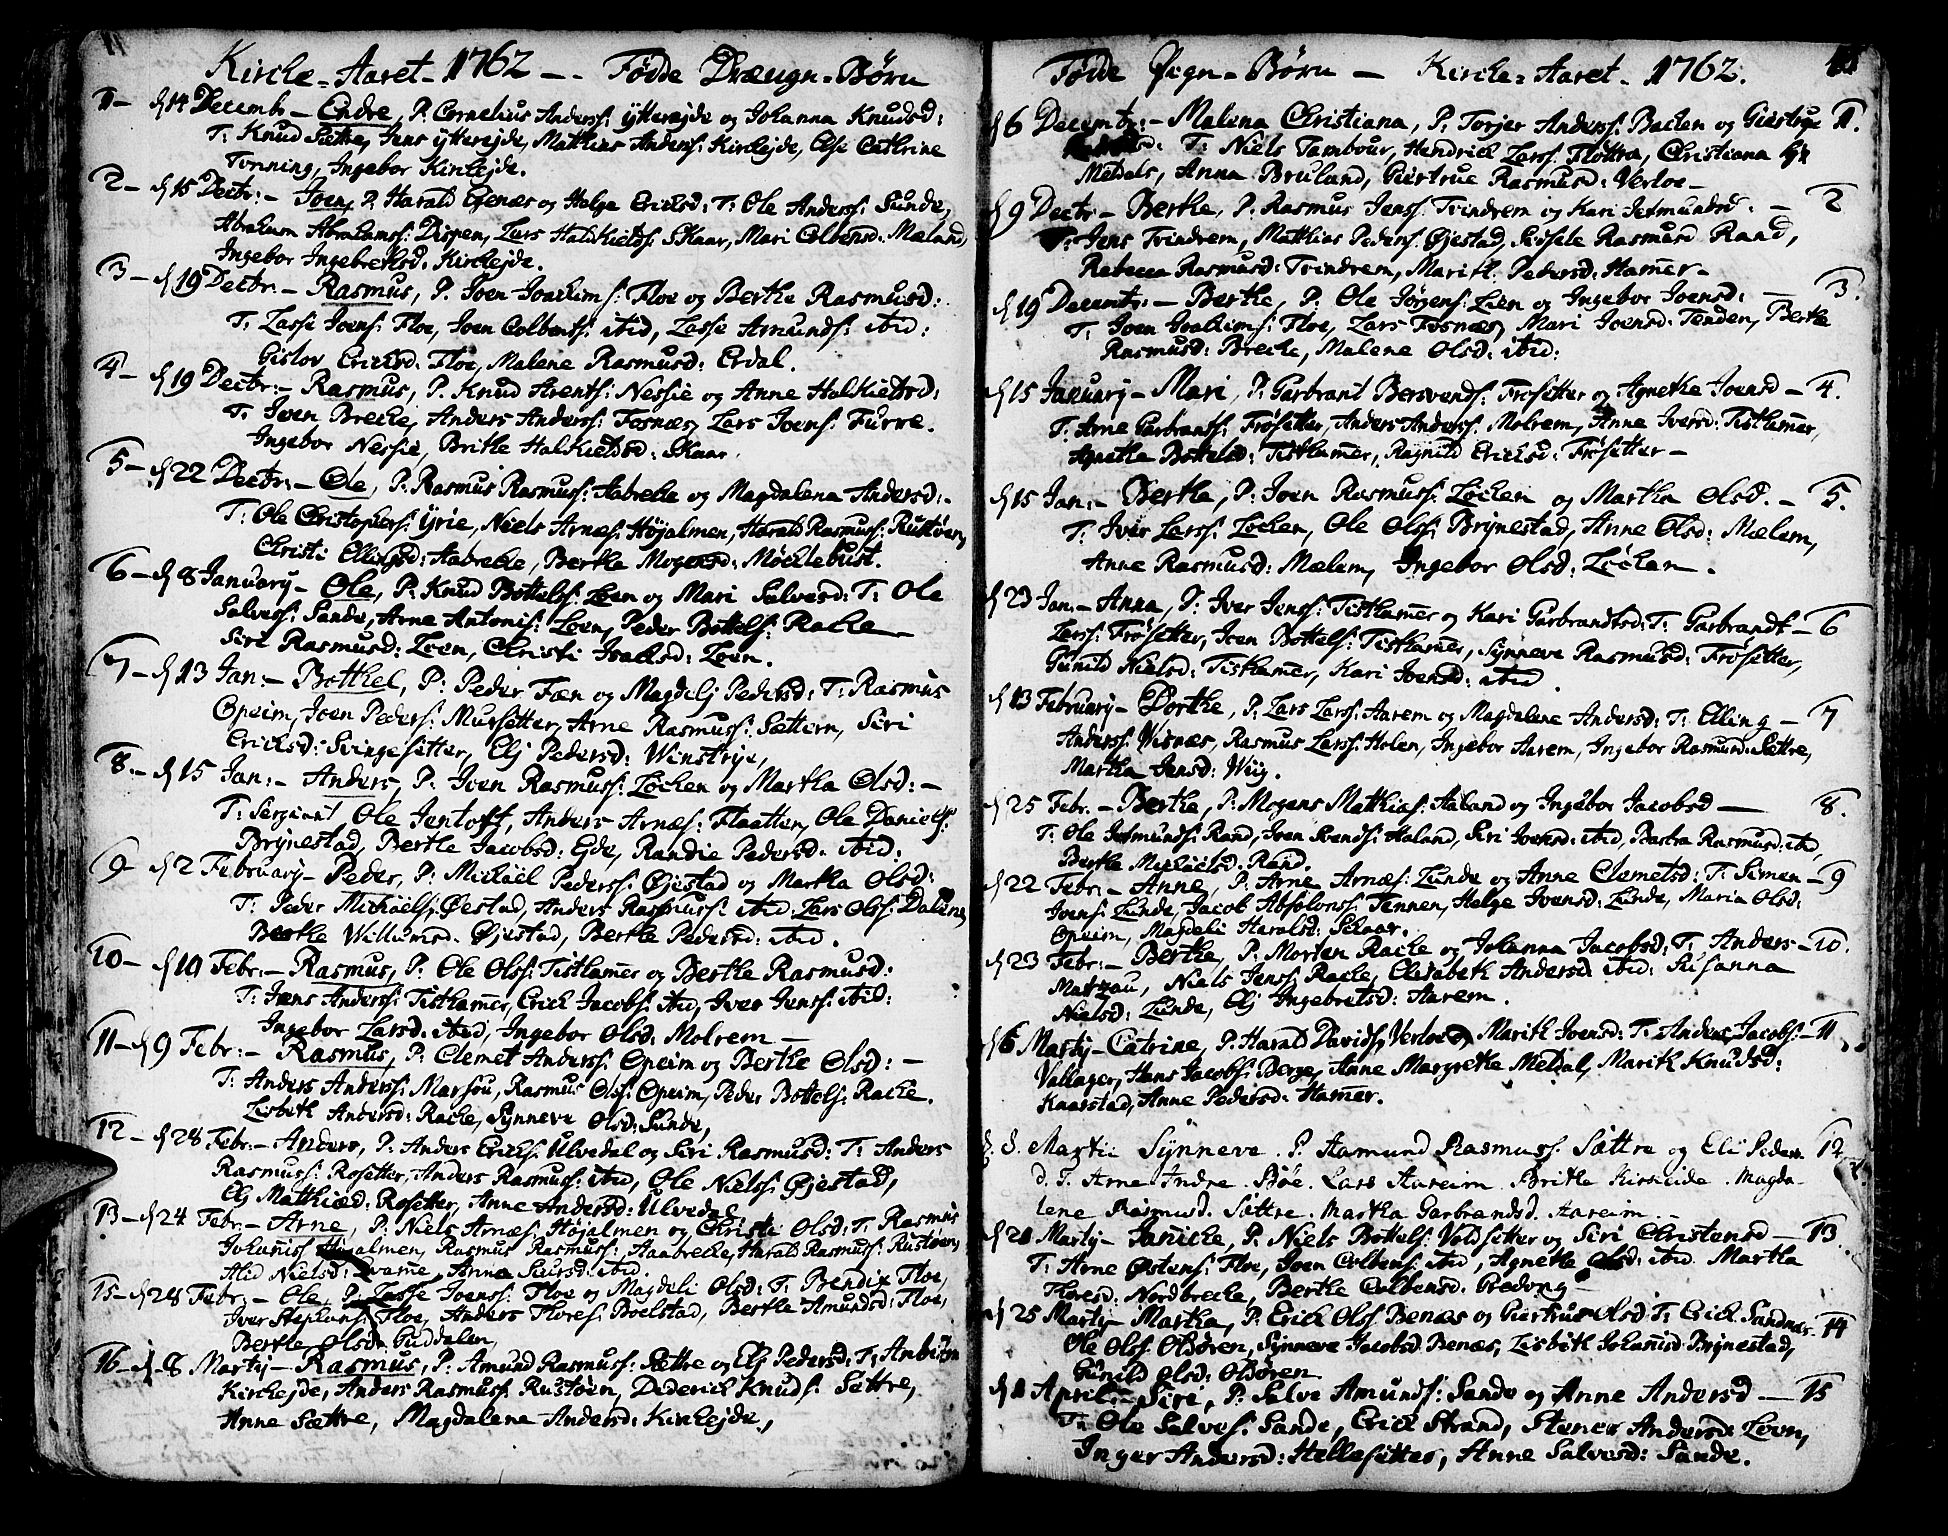 Kirche-Aaret-1762 -- Fødde Dræugn-Børn
1- d 14 Decemb- Endre, P. Cornelius Anderss: ÿtterejde og Johanna Knudsd:
T: Knud Sættre, Jens ÿtterejde, Matthias Anderss: Kirchejde, Else Cathrine
Tonning, Ingebor Kirchejde.
2- d 15 Decbr:- Joen, P: Harald Efenæs og Helge Ericksd: T: Ole Anderss: Sunde,
Abraham Abrahamss: Dispen, Lars Halkielss: Skaar, Mari Colbensd: Mæland,
Ingebor Ingebrektsd: Kirchejde.
3- d 19 Decbr:- Rasmus, P. Joen Joachims: Floe og Berthe Rasmusd:
T. Lasse Joens: Floe, Joen Colbents: ibid, Lasse Amunds: ibid:
Gislov Ericksd: Floe, Malene Rasmusd: Erdal.
4- d 19 Decbr:- Rasmus, P. Knud Arents: Nessie og Anne Halkieldsd:
T. Joen Breche, Anders Anderss: Fosnæs, Lars Joens: Furre.
Ingebor Nessie, Brithe Halkieldsd: Skaar.
5- d 22 Decbr:- Ole, P: Rasmus Rasmuss: Aabrecke og Magdalena Andersd:-
T: Ole Christophers: ÿrie, Niels Arnæs: Höjalmen, Harald Rasmuss: Rustöen,
Christi Ellingsd: Aabreche, Berthe Mogensd: Möcklebust.
6- d 8 January- Ole, P: Knud Bottels: Loen og Mari Salvesd: T: Ole
Salvess: Sande, Arne Antonis: Loen, Peder Bottels: Rache
Siri Rasmusd: Loen, Christi Joachsd: Loen.
7- d 13 Jan:- Bothel, P: Peder Fæn og Magdelj Pedersd: T: Rasmus
Opeim, Joen Peders: Mursetter, Arne Rasmuss: Sættern, Siri
Ericksd: Svingesetter, Elj Pedersd: Winstrÿe,
8.- d 15 Jan:- Anders, P. Joen Rasmuss: Löchen og Martha Olsd:-
T: Sergiant Ole Jentoft, Anders Arnæs: Flaatten, Ole Daniels:
Brÿnestad, Berthe Jacobsd: Ejde, Randie Pedersd: ibid:
9- d 2 February- Peder, P: Michäel Peders: Øjestad og Martha Olsd:
T: Peder Michäels: Øjestad, Anders Rasmuss: ibid: Lars Olss: Dalene,
Berthe Willumsd. Øjestad, Berthe Pedersd: ibid.
10- d 10 Febr:- Rasmus, P: Ole Olss: Tistham̄er og Berthe Rasmusd:
T: Jens Anderss: Tistham̄er, Erick Jacobs: ibid, Iver Jenss: ibid:
Ingebor Larsd: ibid, Ingebor Olsd: Molrem-
11- d 9 Febr:- Rasmus, P: Clemet Anderss: Opeim og Berthe Olsd:-
T: Anders Anderss: Marsou, Rasmus Olss: Opeim, Peder Bottels: Rache.
Lisbeth Andersd: Rache, Sÿnneve Olsd: Sunde,
12- d 28 Febr:- Anders, P: Anders Ericks: Ulvedal og Siri Rasmusd: T: Anders
Rasmuss: Rosetter, Anders Rasmuss: ibid, Ole Nielss: Øjestad,
Elj Matthiæd: Rosetter, Anne Andersd: Ulvedal
13- d 24 Febr:- Arne, P: Niels Arnæs: Höjalmen og Christi Olsd: T. Rasmus
Johanis: Höjalmen, Rasmus Rasmuss: Aabrecke, Harald Rasmuss: Rustöen,
Alid Nielsd: Anna Siursd: ibid.
15- d 28 Febr:- Ole, P: Lasse Joens: Floe og Magdeli Olsd: T: Bendix Floe,
Iver Stephans: Floe, Anders Thores: Boelstad, Berthe Amundsd: Floe,
Berthe Olsd: Guddalen,
16- d 8 Martij- Rasmus, P: Amund Rasmuss: Sættre og Elj Pedersd: T: Anbiörn
Kirchejde, Anders Rasmuss: Rustöen, Dederick Knuds: Sættre,
Anne Sættre, Magdalene Andersd: Kirchejde,
Fødde Pign-Børn - Kirche-Aaret- 1762.
d 6 Decembr:- Malena Christiana, P: Torjer Anderss: Bachen og Giertrue 1.
T: Niels Tambour, Hendrick Larss: Flottra, Christiana
Meldals, Anna Bruland, Giertrue Rasmusd: Verloe-
d 9 Decbr- Berthe, P: Rasmus Jenss: Tvindrem og Kari Jetmundsd:- 2
T: Jens Tvindrem, Matthias Peders: Øjestad, Sidsele Rasmusd Rand,
Rebecca Rasmusd: Tvindrem, Marith Pedersd: Ham̄er-
d 19 Decembr:- Berthe, P. Ole Jörgens: Lien og Ingebor Joensd: - 3.
T: Joen Joachims: Floe, Lars Fosnæs, Mari Joensd: Tenden, Berthe
Rasmusd: Breche, Malene Olsd: ibid:
d 15 January- Mari, P: Garbrant Bersvends: Frösetter og Agnethe Joensd- 4.
T. Arne Garbrants: Frösetter, Anders Anderss: Molrem, Anne Iversd: Tistham̄er,
Agnethe Bottelsd: Tistham̄er, Ragnild Ericksd: Frösetter-
d 15 Jan:- Berthe, P: Joen Rasmuss: Löchen og Martha Olsd.- 5.
T: Iver Larss: Löchen, Ole Olss: Brÿnestad, Anne Olsd: Mælem,
Anne Rasmusd: Mælem, Ingebor Olsd: Löchen.
d 23 Jan:- Anna, P: Iver Jenss: Tistham̄er og Kari Garbrandtsd: T: Garbrandt- 6
Larss: Frösetter, Joen Bottels: Tistham̄er, Sÿnneve Rasmusd: Frösetter,
Gunild Nielsd: Tistham̄er, Kari Joensd: ibid.
d 13 February- Dorthe, P: Lars Larss: Aarem og Magdalene Andersd: T: Elling- 7
Anderss: Wisnæs, Rasmus Larss: Holen, Ingebor Aarem, Ingebor Rasmusd: Sættre,
Martha Jensd: Wiig.
d 25 Febr.- Berthe, P: Mogens Matthias: Aaland og Ingebor Jacobsd- 8.
T: Ole Jetmunds: Rand, Joen Svends: Aaland, Siri Joensd: ibid, Rasmusd: ibid,
Berthe Michäelsd: Rand.
d 22 Febr:- Anne, P: Arne Arnæs: Lunde og Anne Clemetsd: T: Simen- 9
Joens: Lunde, Jacob Absolons: Tennen, Helge Joensd: Lunde, Maria Olsd:
Opeim, Magdeli Haralsd: Skaar.
d 23 Febr:- Berthe, P: Morten Rache og Johanna Jacobsd: T: Anders- 10.
Marzau, Niels Jens: Rache, Elisabeth Andersd ibid: Susanna
Nielsd: Lunde, Elj Ingebretsd: Aarem.
d 6 Martij- Catrine, P: Harald Davids: Verloe og Marith Joensd: T: Anders Jacobs:- 11
Vallager, Hans Jacobs: Berge, Anne Margrethe Meldal, Marith Knudsd:
Knarstad, Anne Pedersd: Ham̄er.
d. 8. Martii Sÿnneve. P. Aamund Rasmuss: Sættre og Eli Peders 12
d. T. Arne Andre. Böe. Lars Aareim. Brithe Kirkeide. Magda-
lene Rasmusd. Sættre. Martha Garbrandsd. Aareim.-
d 21 Martij- Janiche, P. Niels Bottels: Voldsetter og Siri Christensd- 13
T: Arne Østens: Floe, Joen Colbens: ibid, Agnethe Olsd: ibid Martha
Thoresd: Nordbreche, Berthe Colbensd: Bredong-
d 25 Martij- Martha, P: Erick Olss Benæs og Giertrue Olsd: T: Erick Sandnæs- 14
Ole Olss Oldören, Sÿnneve Jacobsd: Benæs, Lisbeth Johanisd: Brÿnestad,
Gunild Olsd: Oldören
d 1 April:- Siri, P. Salve Amunds: Sande og Anne Andersd- 15
T: Ole Salves: Sande, Erick Strand, Stener Andersd: Loen,
Inger Andersd: Hellesetter, Anne Salvesd: Sande.